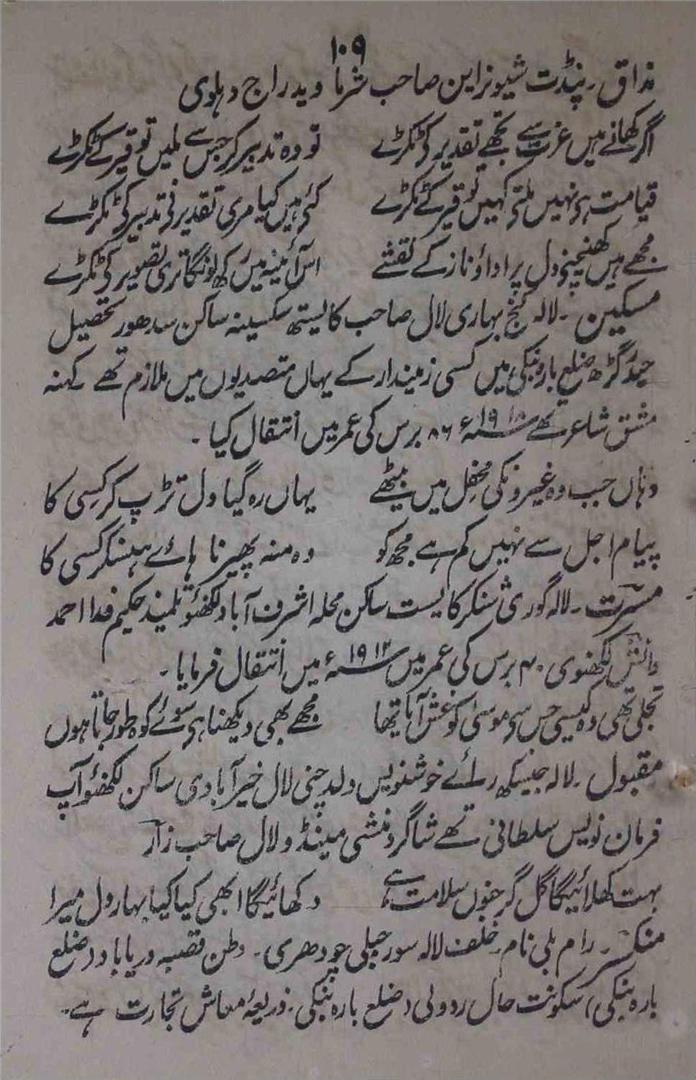 ۱۰۹
مذاق۔ پنڈت شیونراین صاحب شرما ویدراج دہلوی
اگر کھانے ہیں عزت سے تجھے تقدیر کے ٹکڑے تو وہ تدبیر کر جس سے ملیں توقیر کے ٹکڑے
قیامت ہو نہیں ملتے کہیں توقیر کے ٹکڑے کئے ہیں کیا مری تقدیر نے تدبیر کے ٹکڑے
مجھے ہیں کھینچنے دل پر ادا و ناز کے نقشے اس آئینہ میں رکھ لونگا تری تصویر کے ٹکڑے
مسکین۔ لالہ کنج بہاری لال صاحب کایستھ سکسینہ ساکن سدھور تحصیل
حیدرگڑھ ضلع بارہ بنکی میں کسی زمیندار کے یہاں متصدیوں میں ملازم تھے کہنہ
مشق شاعر تھے ۸۶ برس کی عمر میں انتقال کیا۔
وہاں جب وہ غیرونکی محفل میں بیٹھے یہاں رہ گیا دل تڑپ کر کسی کا
پیام اجل سے نہیں کم ہے مجھ کو وہ منہ پھیرنا ہائے ہنسکر کسی کا
مسرت۔ لالہ گوری شنکر کایست ساکن محلہ اشرف آباد لکھنؤ تلمیذ حکیم فدا احمد
دانش لکھنوی ۴۰ برس کی عمر میں ۱۹۱۲ء میں انتقال فرمایا۔
تجلی تھی وہ کیسی جس سے موسیٰ کو غش آیا تھا مجھے بھی دیکھنا ہے سوئے کوہ طور جاتا ہوں
مقبول۔ لالہ جیسکھ رائے خوشنویس ولد چنی لال خیرآبادی ساکن لکھنؤ آپ
فرمان نویس سلطانی تھے شاگرد منشی مینڈو لال صاحب زار
بہت کھلائیگا گل گر جنوں سلامت ہے دکھائیگا ابھی کیا کیا بہار دل میرا
منکسر۔ رام بلی نام۔ خلف لالہ سورجبلی چودھری۔ وطن قصبہ دریاباد (ضلع
بارہ بنکی) سکونت حال ردولی (ضلع بارہ بنکی۔ ذریعۂ معاش تجارت ہے۔